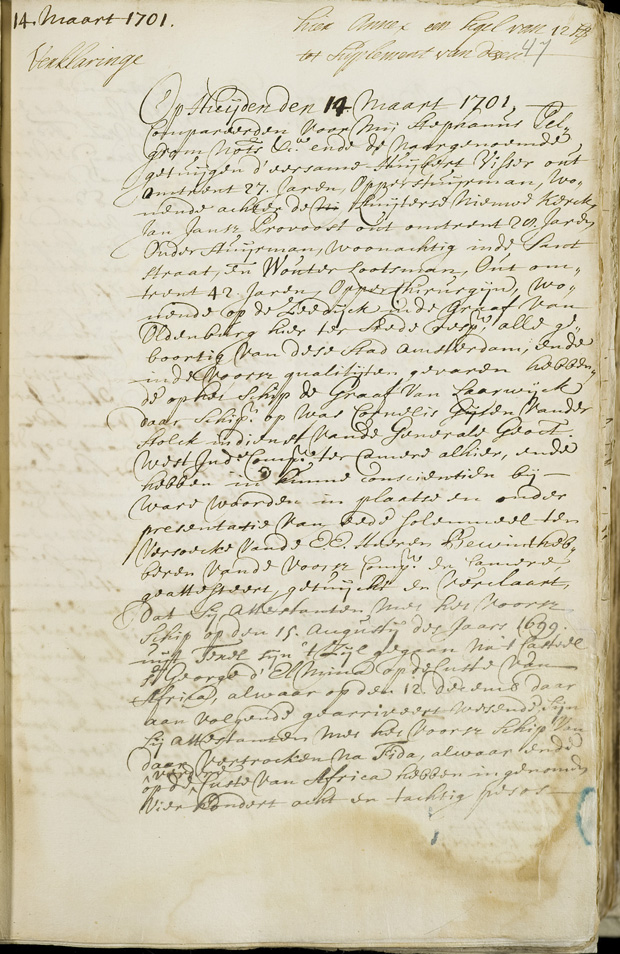 14. Maart 1701.
hier Annex een Segel van 12 st
tot Suplement van dese
47
Verklaringe
Op Huijden den 14. Maart 1701,
Compareerden voor mij Stephanus Pel-
grom, Nots. &ca. ende de Naargenoemde
getuijgen d'eersame Huijbert Visser out
omtrent 27. Jaren, Opperstuijrman, wo-
nende achter de Nieuwe Kerck,
Jan Jansz Provoost out omtrent 28. Jaren
Onder Stuijrman, woonachtig inde Sant
straat, en Wouter Lootsman, Out om-
trent 42. Jaren, Opper Chirurgijn, wo-
nende op de Zeedijck inde Graaf van
Oldenburg hier ter stede resp., alle ge-
boortig van dese Stad Amsterdam, ende
inde voorsz qualitijten gevaren hebben-
de op het Schip de Graaf van Laarwijck
daar Schipr. op was Cornelis Gijsen vander
Stolck in dienst vande Generale Geoct.
West Inde Compe. ter Camere alhier, ende
hebben in hunne conscientien bij
ware woorden in plaatse en onder
presentatie van eede solemneel ten
versoecke vande E.E. Heeren Bewintheb-
beren vande voorsz Compe. en Camere
geattesteert, getuijcht en verclaart,
Dat sij Attestanten met het voorsz
Schip op den 15. Augusty des Jaars 1699.
uijt Texel sijn 't Zeijl gegaan na 't Casteel
St. George d'Elmina op de Custe van
Africa, alwaar op den 12. Decemb daar
aan volgende gearriveert wesende, sijn
sij Attestanten met het voorsz Schip van
daar vertrocken na Fida, alwaar ende
op de Custe van Africa hebben ingenomen
vier hondert acht en tachtig pesos